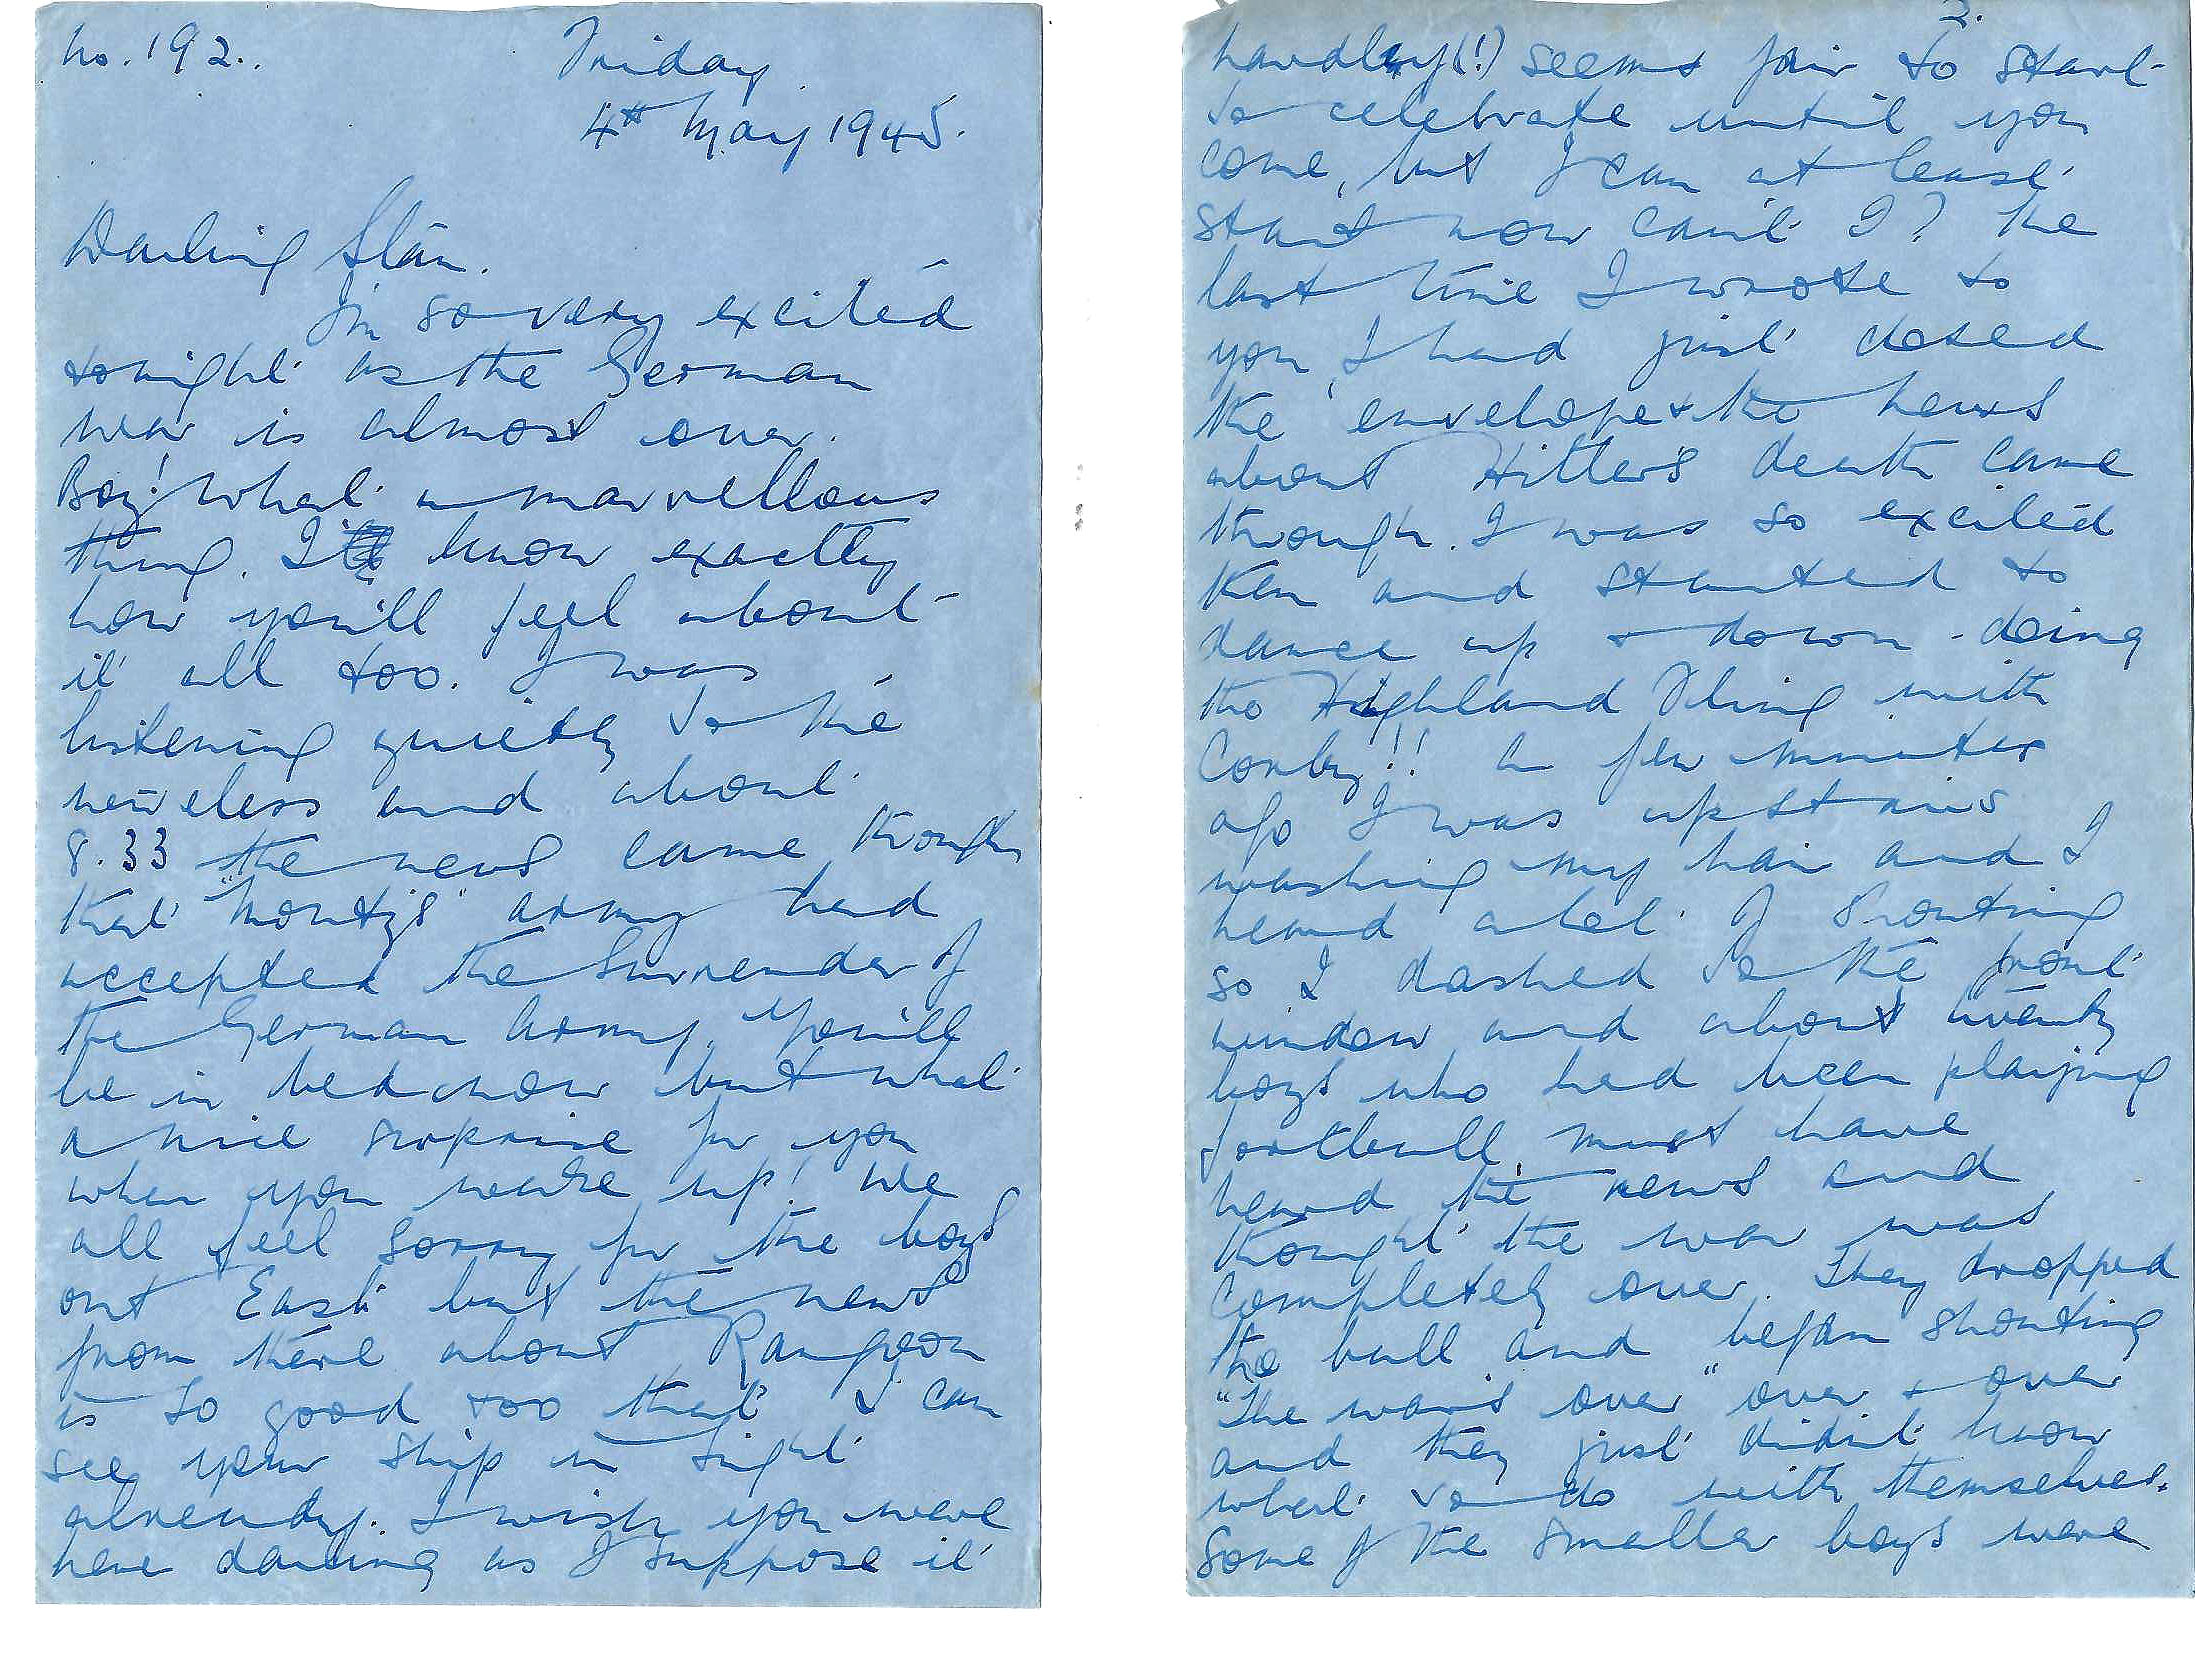 No. 192.
Friday
4th May 1945.
Darling Stan.
I'm so very excited
tonight as the German
war is almost over.
Boy! what a marvellous
thing. I know exactly
how you'll feel about
it all too. I was
listening quietly to the
wireless and about
8.33 the news came through
that "Monty's" army had
accepted the surrender of
the German Army. You'll
be in bed now but what
a nice surprise for you
when you wake up! We
all feel sorry for the boys
out East but the news
from there about Rangoon
is so good too that I can
see your ship in sight
already. I wish you were
here darling as I suppose it
2.
hardly(!) seems fair to start
to celebrate until you
come, but I can at least
start now can't I? The
last time I wrote to
you, I had just closed
the envelope & the news
about Hitler's death came
through. I was so excited
then and started to
dance up & down - doing
the Highland Fling with
Corby!! A few minutes
ago I was upstairs
washing my hair and I
heard a lot of shouting
so I dashed to the front
window and about twenty
boys who had been playing
football must have
heard the news and
thought the war was
completely over. They dropped
the ball and began shouting
"The war's over" over & over
and they just didn't know
what to do with themselves.
Some of the smaller boys were